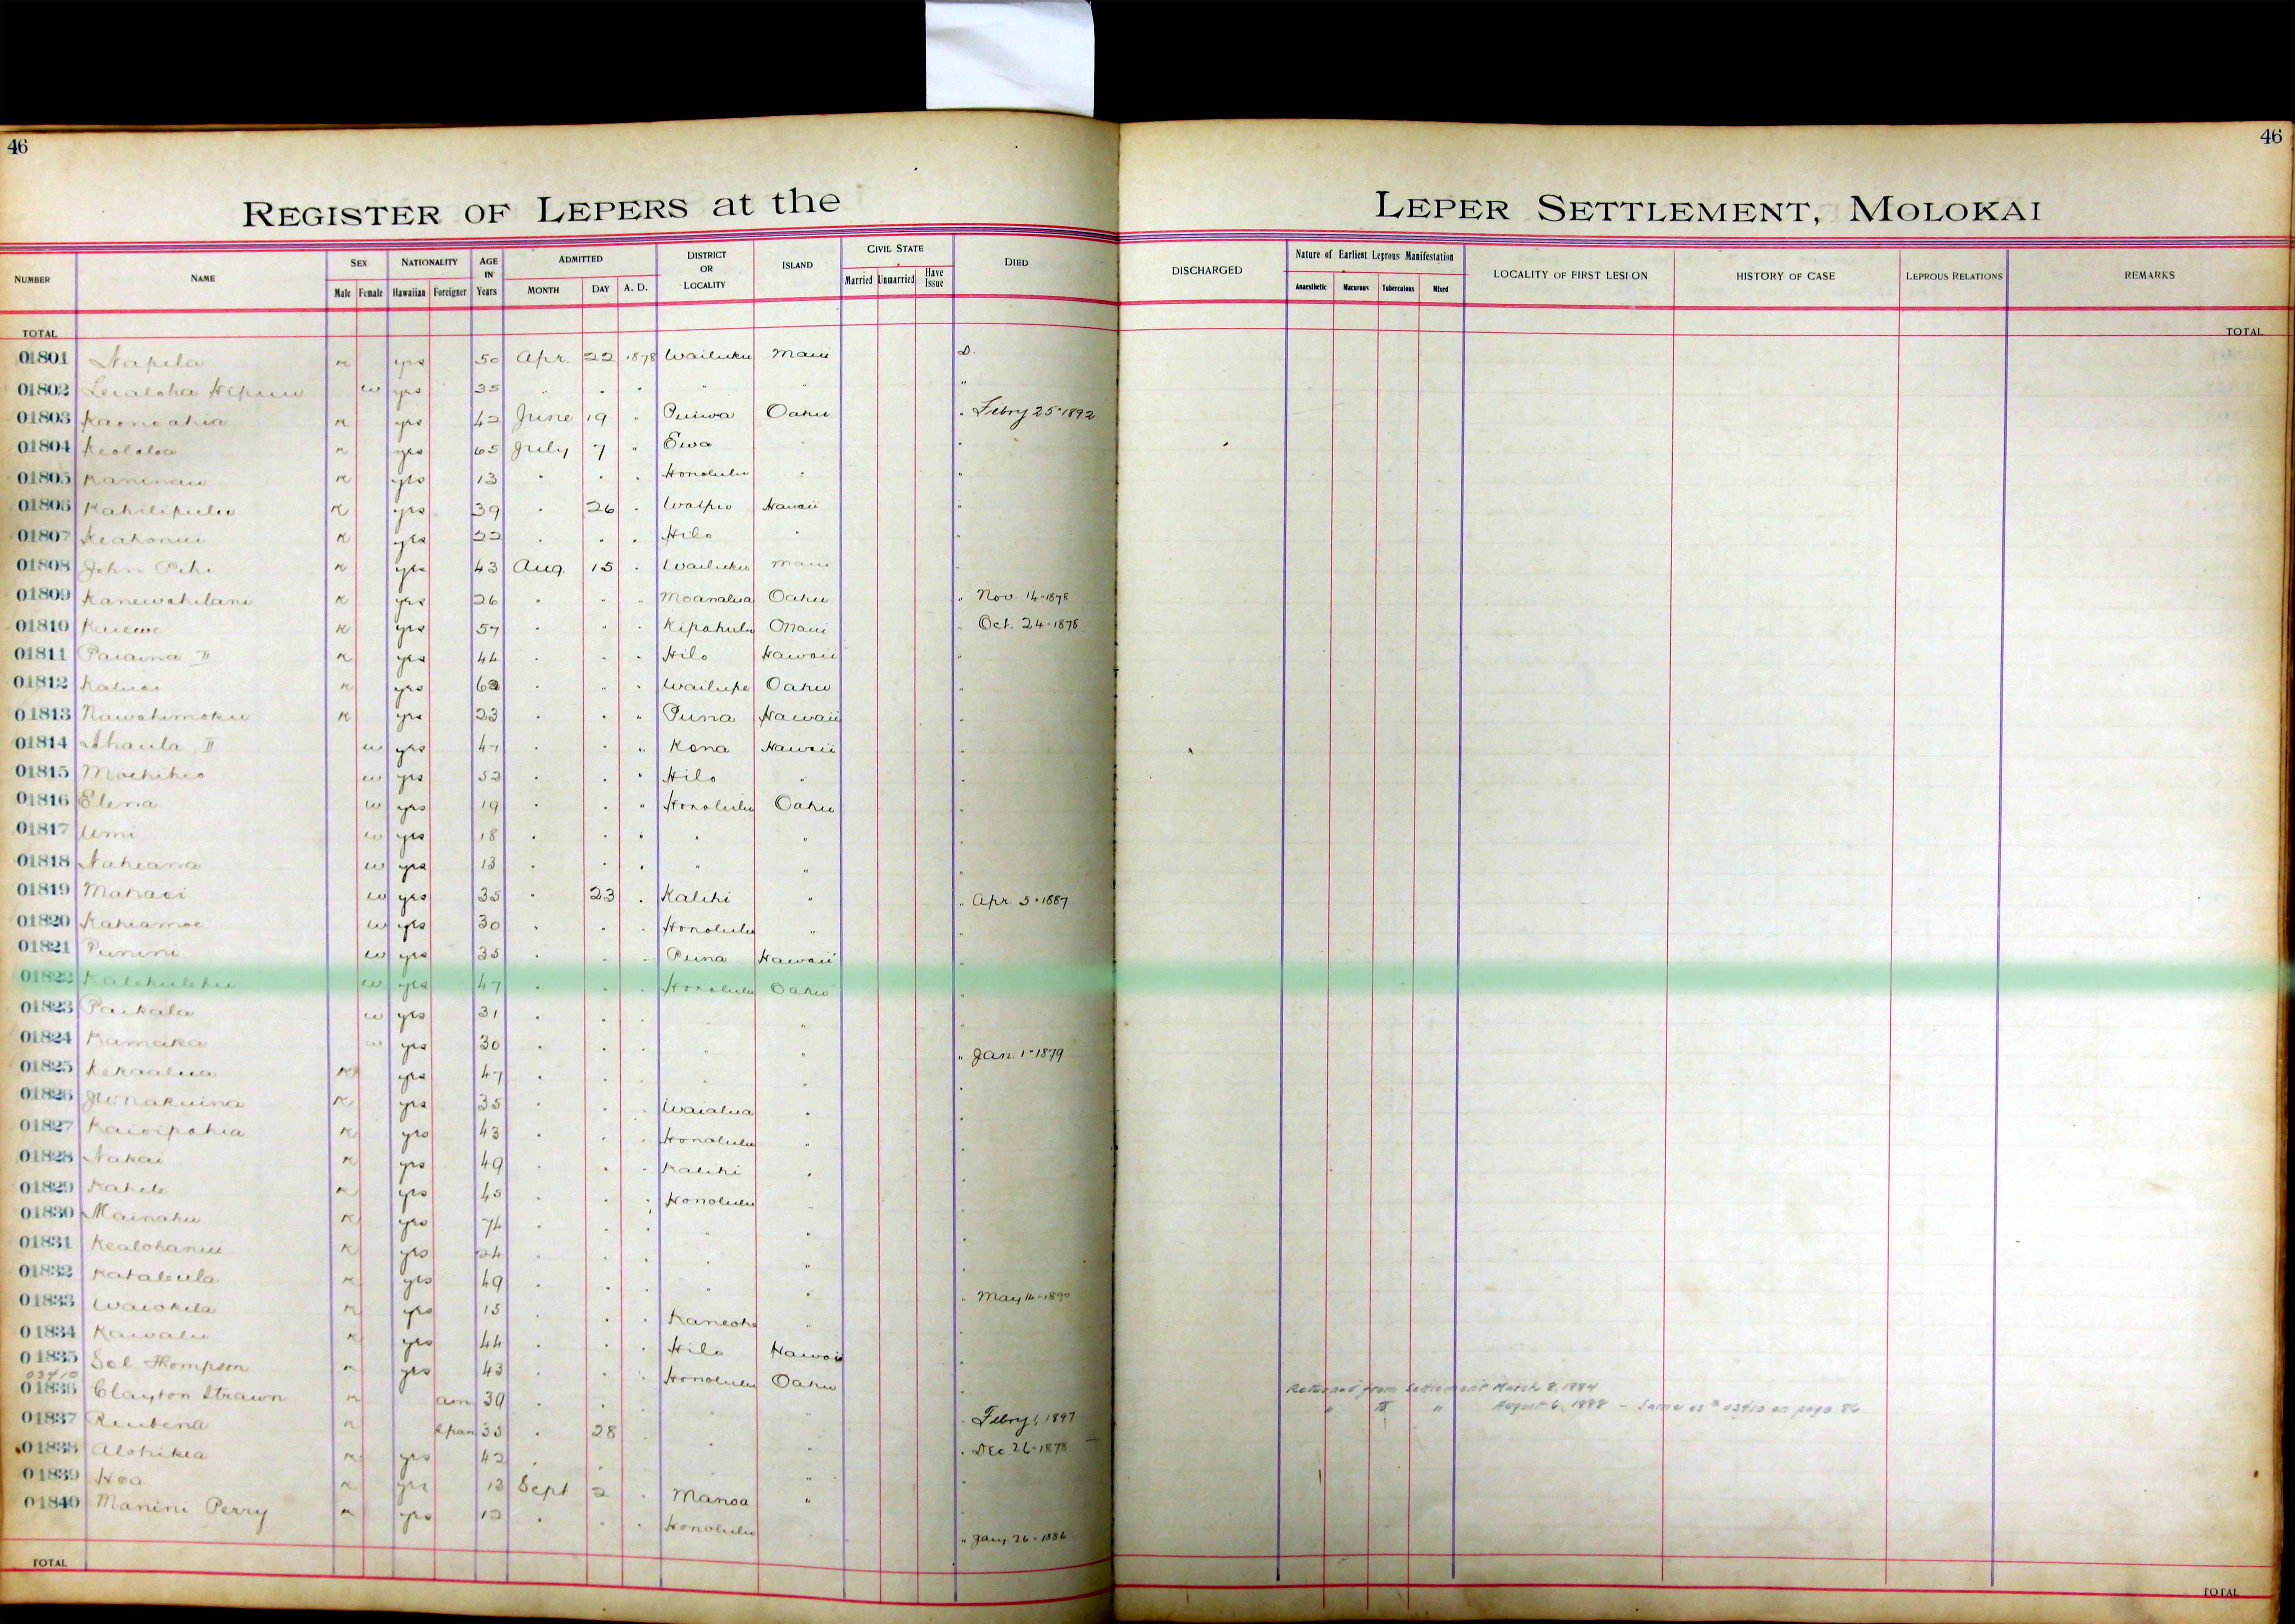 46
46
REGISTER OF LEPERS at the LEPER SETTLEMENT, MOLOKAI
NUMBER NAME SEX Male Female NATIONALITY Hawaiian Foreigner AGE IN Years ADMITTED MONTH DAY A. D. DISTRICT OR LOCALITY ISLAND CIVIL STATE Married Unmarried Have Issue DIED DISCHARGED Nature of Earliest Leprous Manifestation Anaesthetic Macurous Tuberculous Mixed LOCALITY OF FIRST LESION HISTORY OF CASE LEPROUS RELATIONS REMARKS
TOTAL TOTAL
01801 Napela m yes 50 Apr. 22 1878 Wailuku Maui D.
01802 Lealoha w yes 35 " " " " " "
01803 Kaonoahia m yes 42 June 19 " Puiwa Oahu " Febry 25 1892
01804 Keololoa m yes 65 July 7 " Ewa " "
01805 Kaninau m yes 13 " " " Honolulu " "
01806 Kahilipulu m yes 39 " 26 " Waipio Hawaii "
01807 Keahonui m yes 22 " " " Hilo " "
01808 John m yes 43 Aug. 15 " Wailuku Maui "
01809 Kanewahilani m yes 26 " " " Moanalua Oahu " Nov. 14-1878
01810 Kaiewe m yes 57 " " " Kipahulu Maui " Oct. 24-1878
01811 Paiaina II m yes 44 " " " Hilo Hawaii "
01812 Kaluai m yes 62 " " " Wailupe Oahu "
01813 Nawahimoku m yes 23 " " " Puna Hawaii "
01814 Ahaula II w yes 47 " " " Kona Hawaii "
01815 w yes 52 " " " Hilo " "
01816 Elena w yes 19 " " " Honolulu Oahu "
01817 Umi w yes 18 " " " " " "
01818 Nakeana w yes 13 " " " " " "
01819 Mahaei w yes 35 " 23 " Kalihi " " Apr. 5-1887
01820 Kahiamoe w yes 30 " " " Honolulu " "
01821 Punini w yes 35 " " " Puna Hawaii "
01822 Kalehulehu w yes 47 " " " Honolulu Oahu "
01823 Paikala w yes 31 " " " " " "
01824 Kamaka w yes 30 " " " " " " Jan. 1-1879
01825 Kekaalua m yes 47 " " " " " "
01826 m yes 35 " " " Waialua " "
01827 Kaioipahia m yes 43 " " " Honolulu " "
01828 Nakai m yes 49 " " " Kalihi " "
01829 Kahele m yes 45 " " " Honolulu " "
01830 Mainahu m yes 74 " " " " " "
01831 Kealohanui m yes 24 " " " " " "
01832 Kataluula m yes 49 " " " " " " May 14-1890
01833 Waiokila m yes 15 " " " Kaneohe " "
01834 Kawalu m yes 44 " " " Hilo Hawaii "
01835 Sol Thompson m yes 43 " " " Honolulu Oahu "
03410
01836 Clayton Strawn m am 39 " " " " " " Febry 1, 1897 Returned from Settlement March 8, 1884
" " " August 6, 1888 - Same as # 03410 on page 86
01837 Reubena m Span 35 " 28 " " " " Dec 26-1878
01838 Alohikea m yes 42 " " " " " "
01839 Hoa m yes 13 Sept 2 " Manoa " "
01840 Manini Perry m yes 12 " " " Honolulu " " Jany 26-1886
TOTAL TOTAL